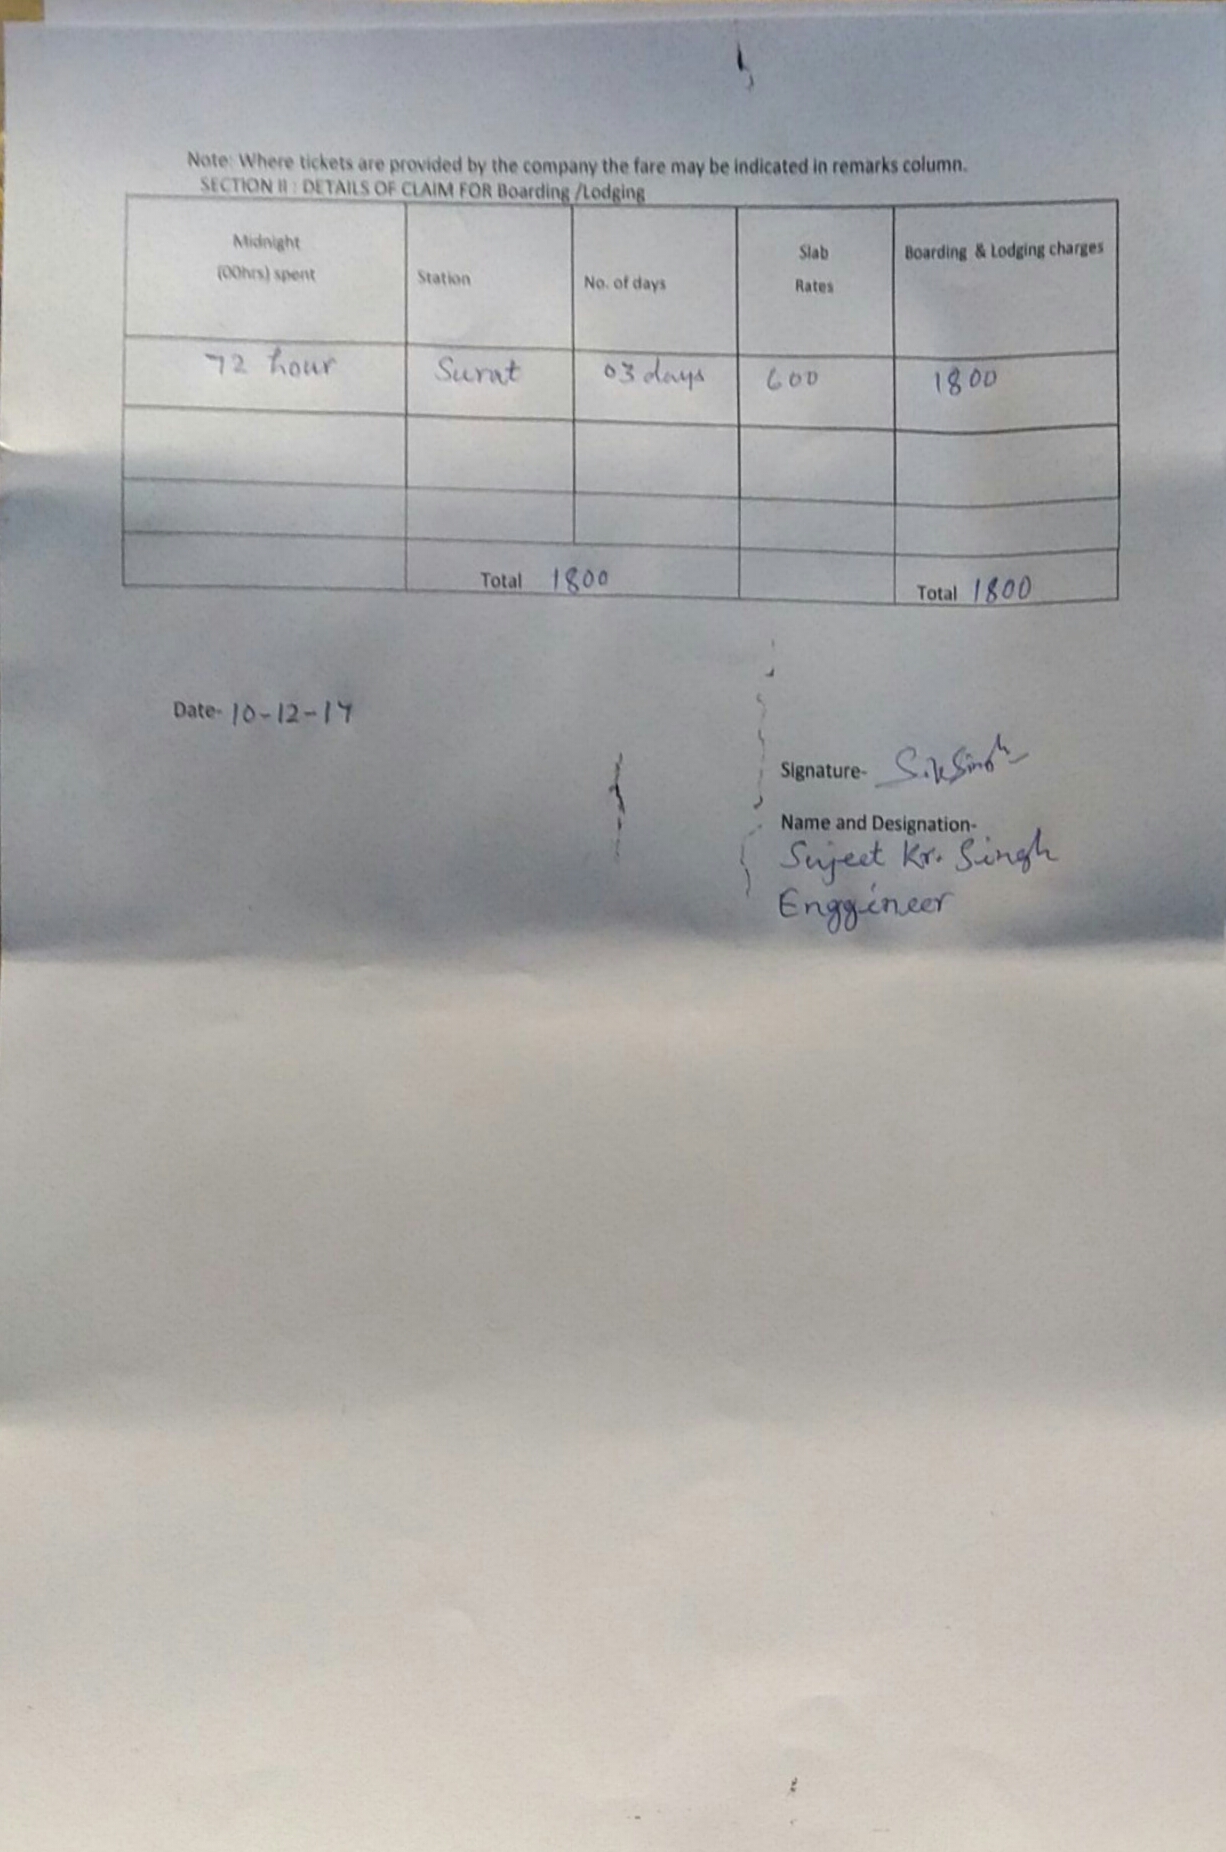 Note: Where tickets are provided by the company the fare may be indicated in remarks column.
SECTION II : DETAILS OF CLAIM FOR Boarding /Lodging
Midnight (00hrs) spent Station No. of days Slab Rates Boarding & Lodging charges
72 hour Surat 03 days 600 1800
Total 1800 Total 1800
Date- 10-12-17
Signature- S.K Singh
Name and Designation-
Sujeet Kr. Singh
Enggineer